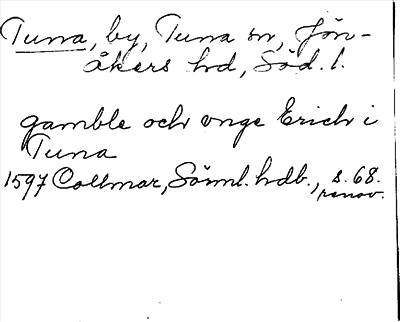 Tuna, by, Tuna sn, Jön-
åkers hd, Söd. l.
gamble och vnge Erich i
Tuna
1597 Collmar, Sörml. hdb., s. 68.
renov.